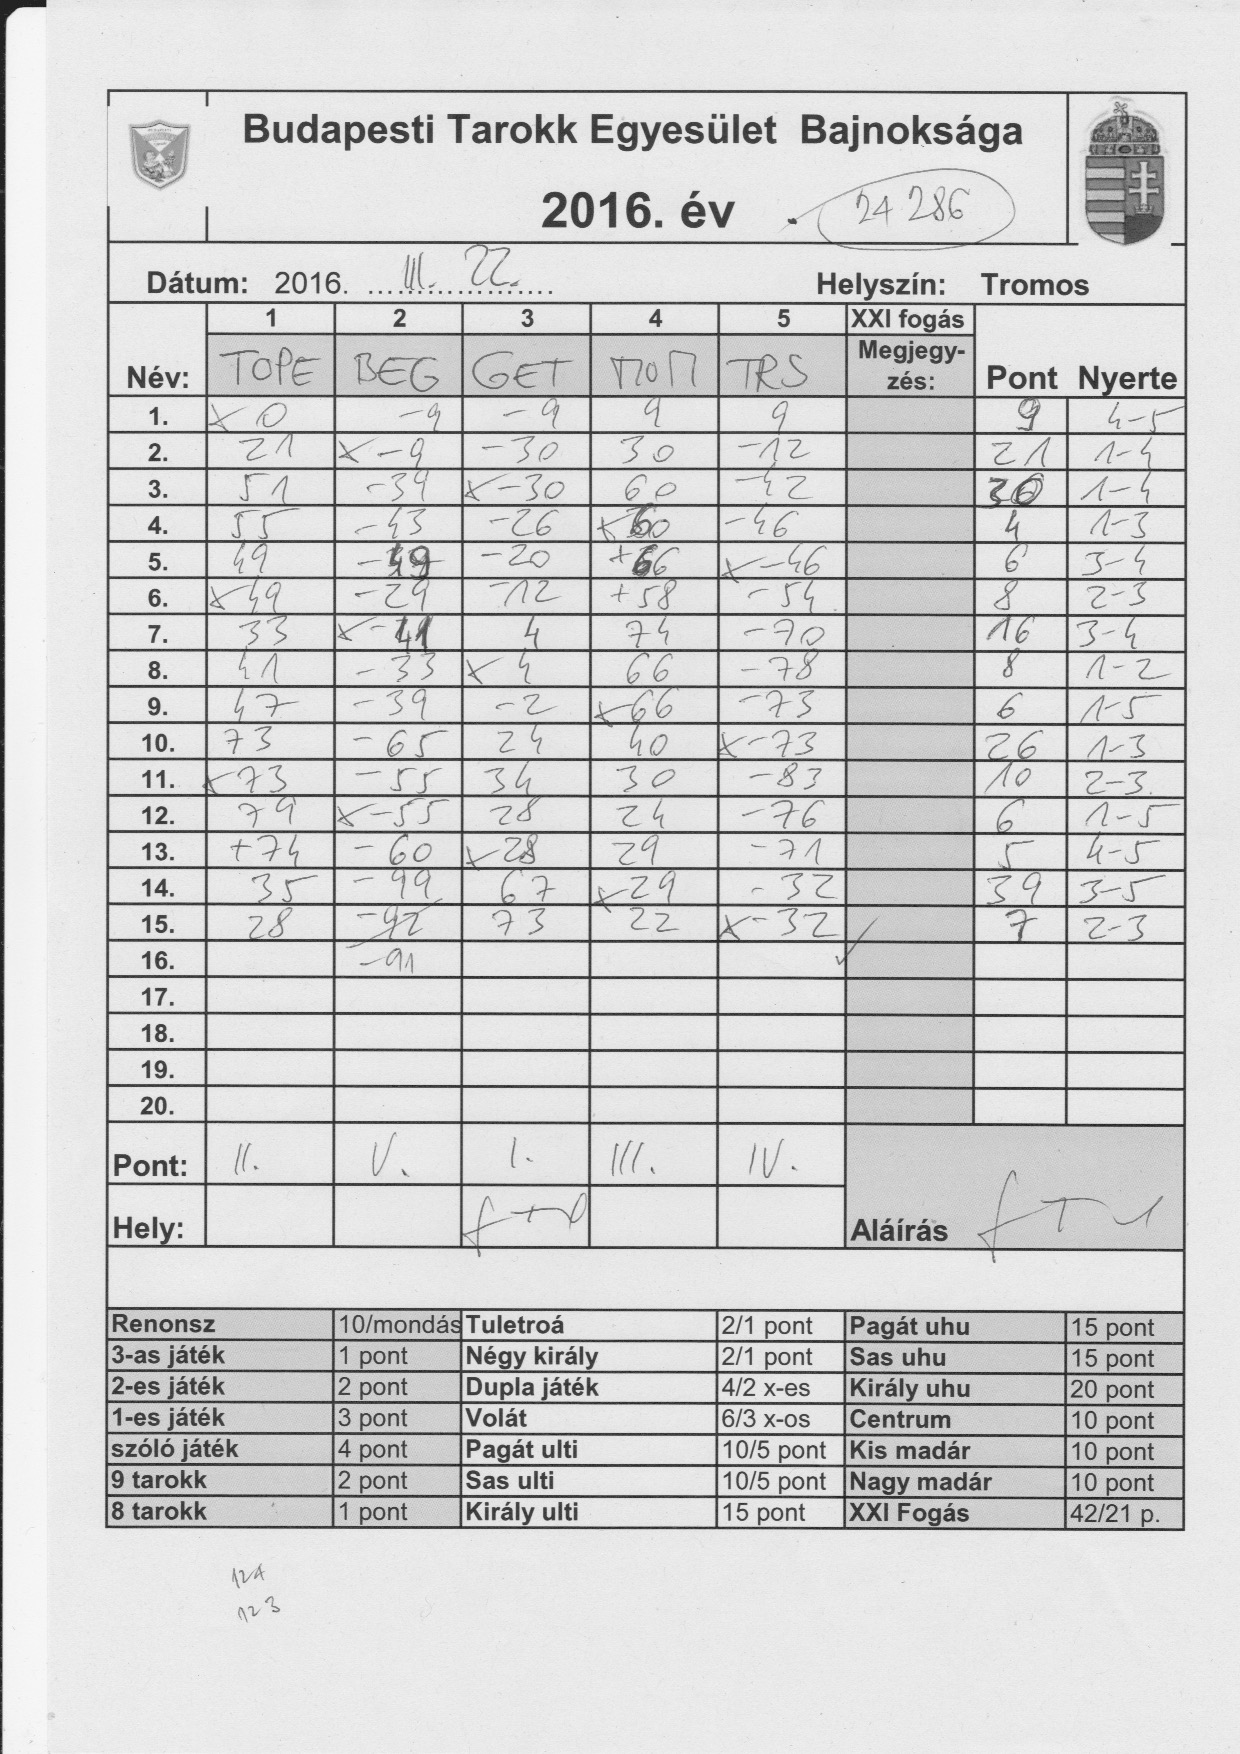 Budapesti Tarokk Egyesület Bajnoksága
2016. év 24 286
Dátum: 2016. III. 22. Helyszín: Tromos
1 2 3 4 5 XXI fogás
Név: TOPE BEG GET ПОП TRS Megjegy-zés: Pont Nyerte
1. x 0 -9 -9 9 9 9 4-5
2. 21 x-9 -30 30 -12 21 1-4
3. 51 -39 x-30 60 -42 30 1-4
4. 55 -43 -26 x60 -46 4 1-3
5. 49 -49 -20 +66 x-46 6 3-4
6. x49 -29 -12 +58 -54 8 2-3
7. 33 x-41 4 74 -70 16 3-4
8. 41 -33 x4 66 -78 8 1-2
9. 47 -39 -2 x66 -73 6 1-5
10. 73 -65 24 40 x-73 26 1-3
11. x73 -55 34 30 -83 10 2-3.
12. 79 x-55 28 24 -76 6 1-5
13. +74 -60 x28 29 -71 5 4-5
14. 35 -99 67 x29 -32 39 3-5
15. 28 -92 73 22 x-32 7 2-3
16. -91
17.
18.
19.
20.
Pont: II. V. I. III. IV.
Hely: Aláírás
Renonsz 10/mondás Tuletroá 2/1 pont Pagát uhu 15 pont
3-as játék 1 pont Négy király 2/1 pont Sas uhu 15 pont
2-es játék 2 pont Dupla játék 4/2 x-es Király uhu 20 pont
1-es játék 3 pont Volát 6/3 x-os Centrum 10 pont
szóló játék 4 pont Pagát ulti 10/5 pont Kis madár 10 pont
9 tarokk 2 pont Sas ulti 10/5 pont Nagy madár 10 pont
8 tarokk 1 pont Király ulti 15 pont XXI Fogás 42/21 p.
124
123